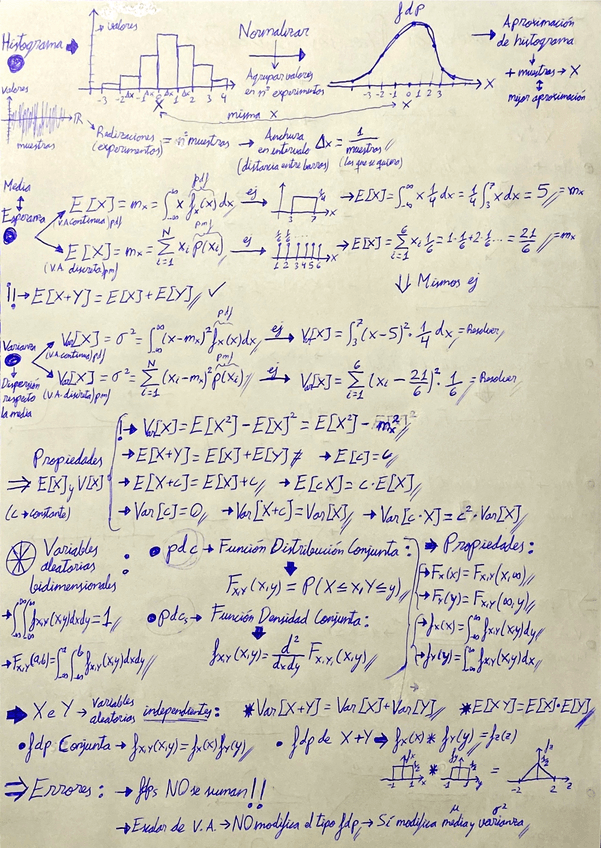 Histograma →
valores
-3 -2 -1 X 1 2 3 4
Δx Δx Δx Δx
Normalizar
Agrupar valores
en nº experimentos
fdp
-3 -2 -1 0 1 2 3
X
misma X
→ Aproximación
de histograma
+ muestras → X
mejor aproximación
Valores
muestras
Realizaciones (experimentos) = nº muestras → Anchura en intervalo (distancia entre barras) Δx = 1/muestras (las que se quiera)
Media
Esperanza
E[X] = mₓ = ∫_{-∞}^{∞} x fₓ(x) dx (V.A. continua) pdf
ej
1/4
3 7
→ E[X] = ∫_{-∞}^{∞} x 1/4 dx = 1/4 ∫_3^7 x dx = 5 = mₓ
E[X] = mₓ = Σ_{i=1}^{N} xᵢ p(xᵢ) (V.A. discreta) pmf
ej
1/6 1/6 ...
1 2 3 4 5 6 x
→ E[X] = Σ_{i=1}^{6} xᵢ 1/6 = 1·1/6+2·1/6... = 21/6 = mₓ
!! → E[X+Y] = E[X] + E[Y] ✓
⇓ Mismos ej
Varianza
Dispersión
respecto
la media
Var[X] = σ² = ∫_{-∞}^{∞} (x-mₓ)² fₓ(x) dx (V.A. continua) pdf
ej → Var[X] = ∫_3^7 (x-5)² · 1/4 dx = Resolver
Var[X] = σ² = Σ_{i=1}^{N} (xᵢ-mₓ)² p(xᵢ) (V.A. discreta) pmf
ej → Var[X] = Σ_{i=1}^{6} (xᵢ - 21/6)² · 1/6 = Resolver
Propiedades
⇒ E[X] y V[X]
(c → constante)
! → Var[X] = E[X²] - E[X]² = E[X²] - mₓ²
→ E[X+Y] = E[X] + E[Y] → E[c] = c
→ E[X+c] = E[X] + c → E[cX] = c·E[X]
→ Var[c] = 0 → Var[X+c] = Var[X] → Var[c·X] = c²·Var[X]
Variables
aleatorias
bidimensionales :
• pdc → Función Distribución Conjunta:
F_{X,Y}(x,y) = P(X ≤ x, Y ≤ y)
→ ∫_{-∞}^{∞}∫_{-∞}^{∞} f_{X,Y}(x,y) dxdy = 1
→ F_{X,Y}(a,b) = ∫_{-∞}^{a} ∫_{-∞}^{b} f_{X,Y}(x,y) dxdy
• pdcs → Función Densidad Conjunta:
f_{X,Y}(x,y) = d²/dxdy F_{X,Y}(x,y)
→ Propiedades:
→ Fₓ(x) = F_{X,Y}(x,∞)
→ F_Y(y) = F_{X,Y}(∞,y)
→ fₓ(x) = ∫_{-∞}^{∞} f_{X,Y}(x,y) dy
→ f_Y(y) = ∫_{-∞}^{∞} f_{X,Y}(x,y) dx
→ X e Y → Variables aleatorias independientes: * Var[X+Y] = Var[X] + Var[Y] * E[XY] = E[X]·E[Y]
• fdp Conjunta → f_{X,Y}(x,y) = fₓ(x) f_Y(y) • fdp de X+Y → fₓ(x) * f_Y(y) = f_Z(z)
fₓ 1/2 -1 1 * f_Y 1/2 -1 1 = 1/2 -2 2
⇒ Errores: → fdps NO se suman!!
→ Escalar de V.A. → NO modifica el tipo fdp → Sí modifica media y varianza
μ σ²